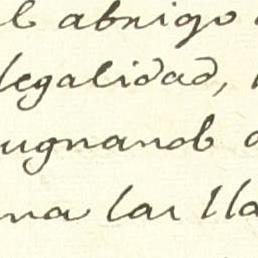 l abrigo
legalidad,
ugnanob
na las lla